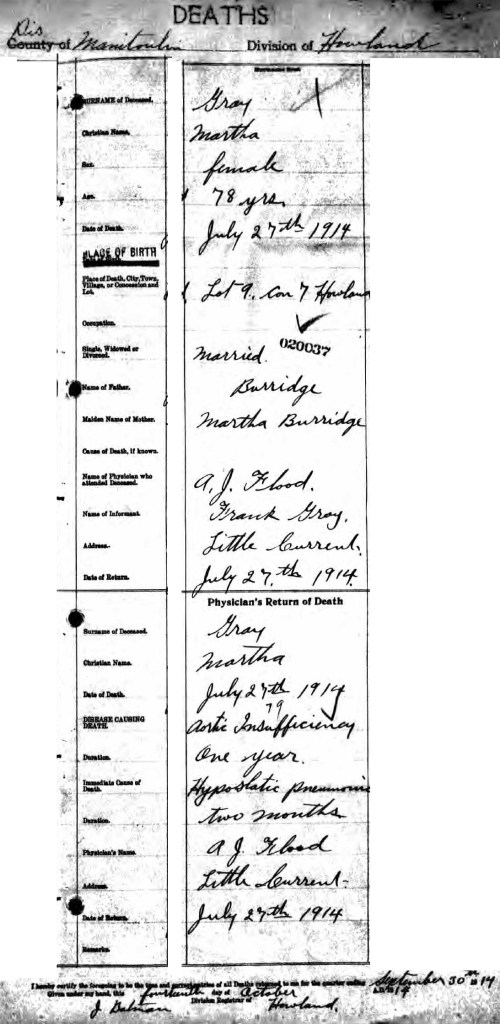 DEATHS
Dis
County of Manitoulin Division of Howland
SURNAME of Deceased. Gray
Christian Name. Martha
Sex. female
Age. 78 yrs.
Date of Death. July 27th 1914
PLACE OF BIRTH
Place of Death, City, Town, Village, or Concession and Lot. Lot 9, Con 7 Howland
Occupation.
020037
Single, Widowed or Divorced. Married.
Name of Father. Burridge
Maiden Name of Mother. Martha Burridge
Cause of Death, if known.
Name of Physician who attended Deceased. A. J. Flood.
Name of Informant. Frank Gray.
Address. Little Current.
Date of Return. July 27th 1914.
Physician's Return of Death
Surname of Deceased. Gray
Christian Name. Martha
Date of Death. July 27th 1914
79
DISEASE CAUSING DEATH. Aortic Insufficiency
Duration. One year.
Immediate Cause of Death. Hypostatic pneumonia
Duration. two months
Physician's Name. A J. Flood
Address. Little Current.
Date of Return. July 27th 1914
Remarks.
I hereby certify the foregoing to be the true and correct entries of all Deaths returned to me for the quarter ending September 30th 1914
Given under my hand, this fourteenth day of October A.D. 1914
J. Batman Division Registrar of Howland.